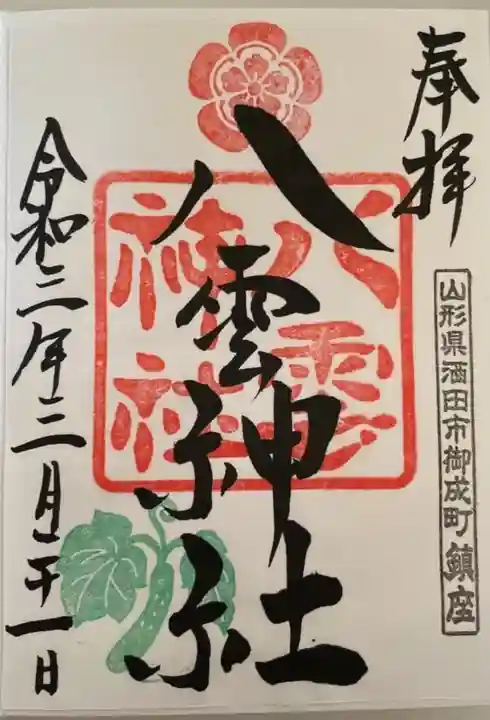 奉拝
山形県酒田市御成町鎮座
八雲神社
八雲神社
令和三年三月二十一日